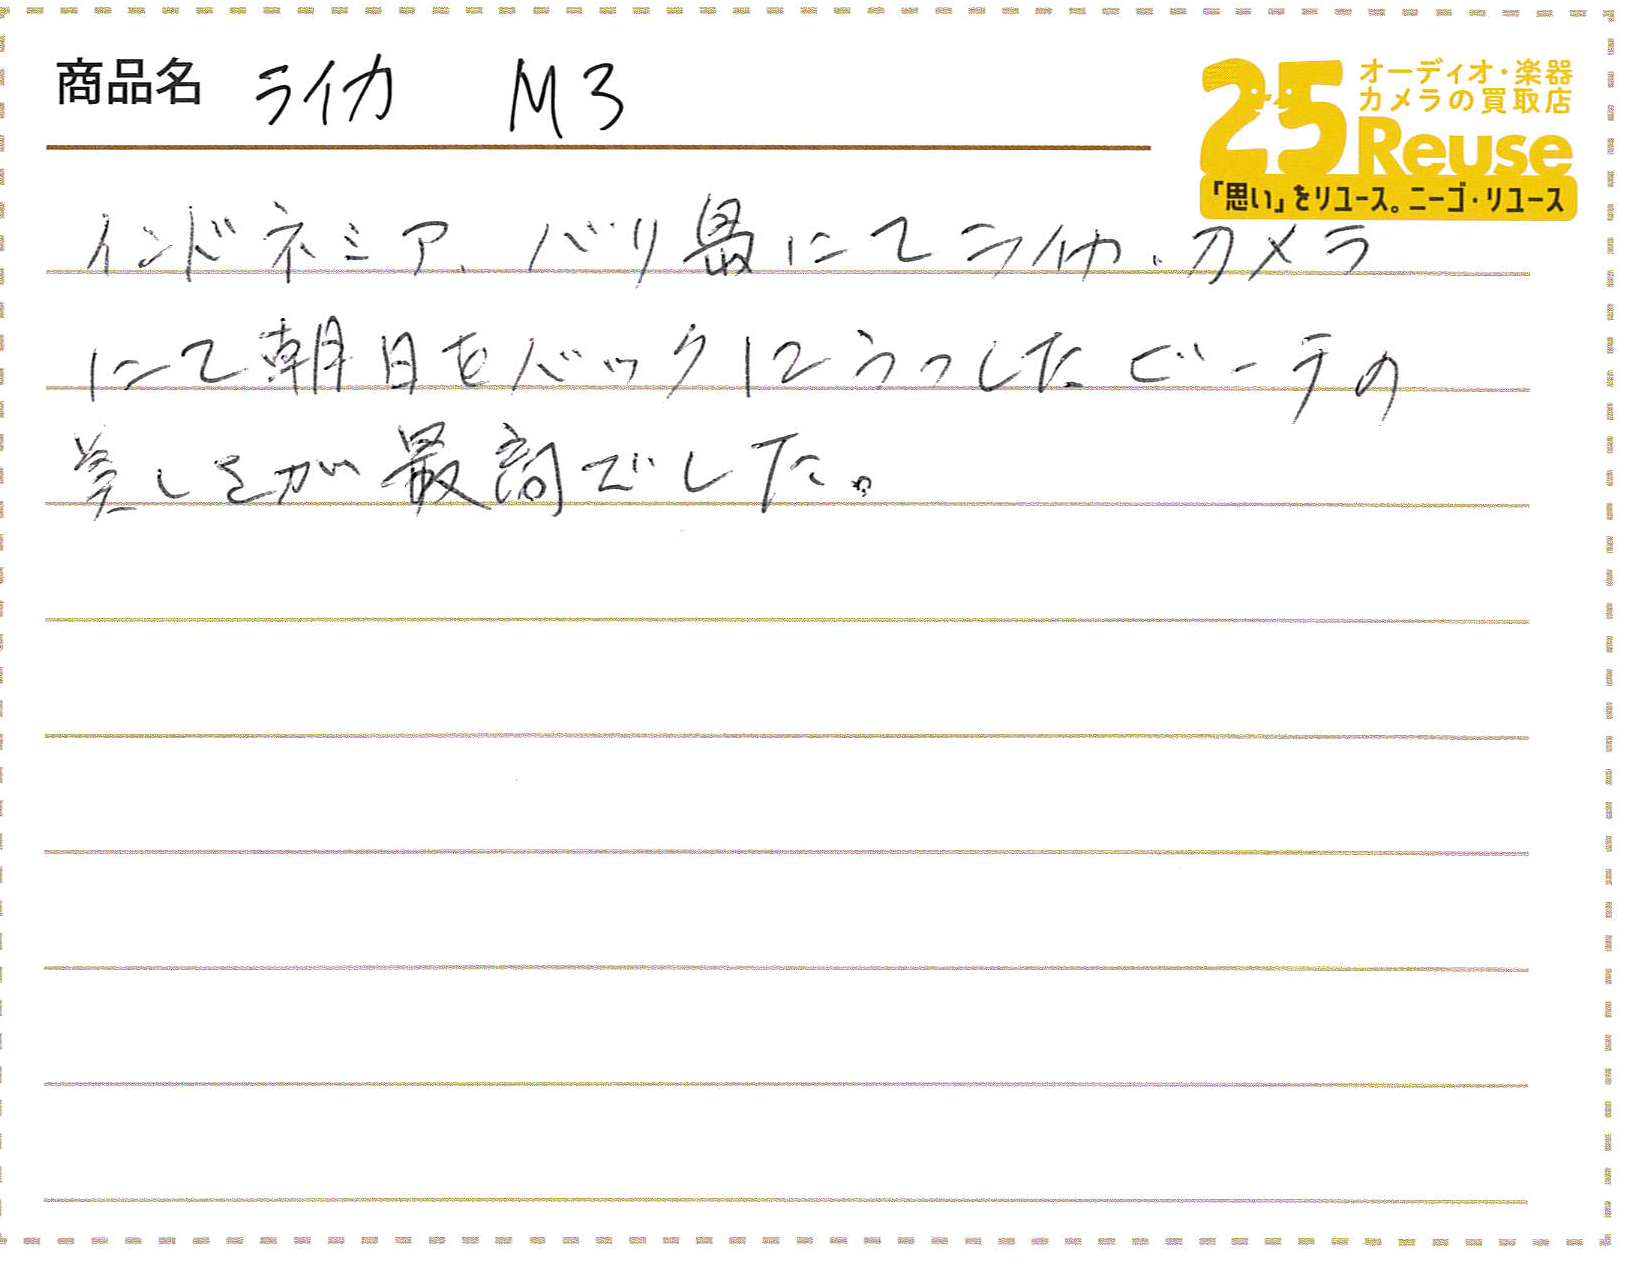 商品名 ライカ M3
25 オーディオ・楽器
カメラの買取店
Reuse
「思い」をリユース。ニーゴ・リユース
インドネミア、バリ島にてライカ、カメラ
にて朝日をバックにうつしたビーチの
美しさが最高でした。